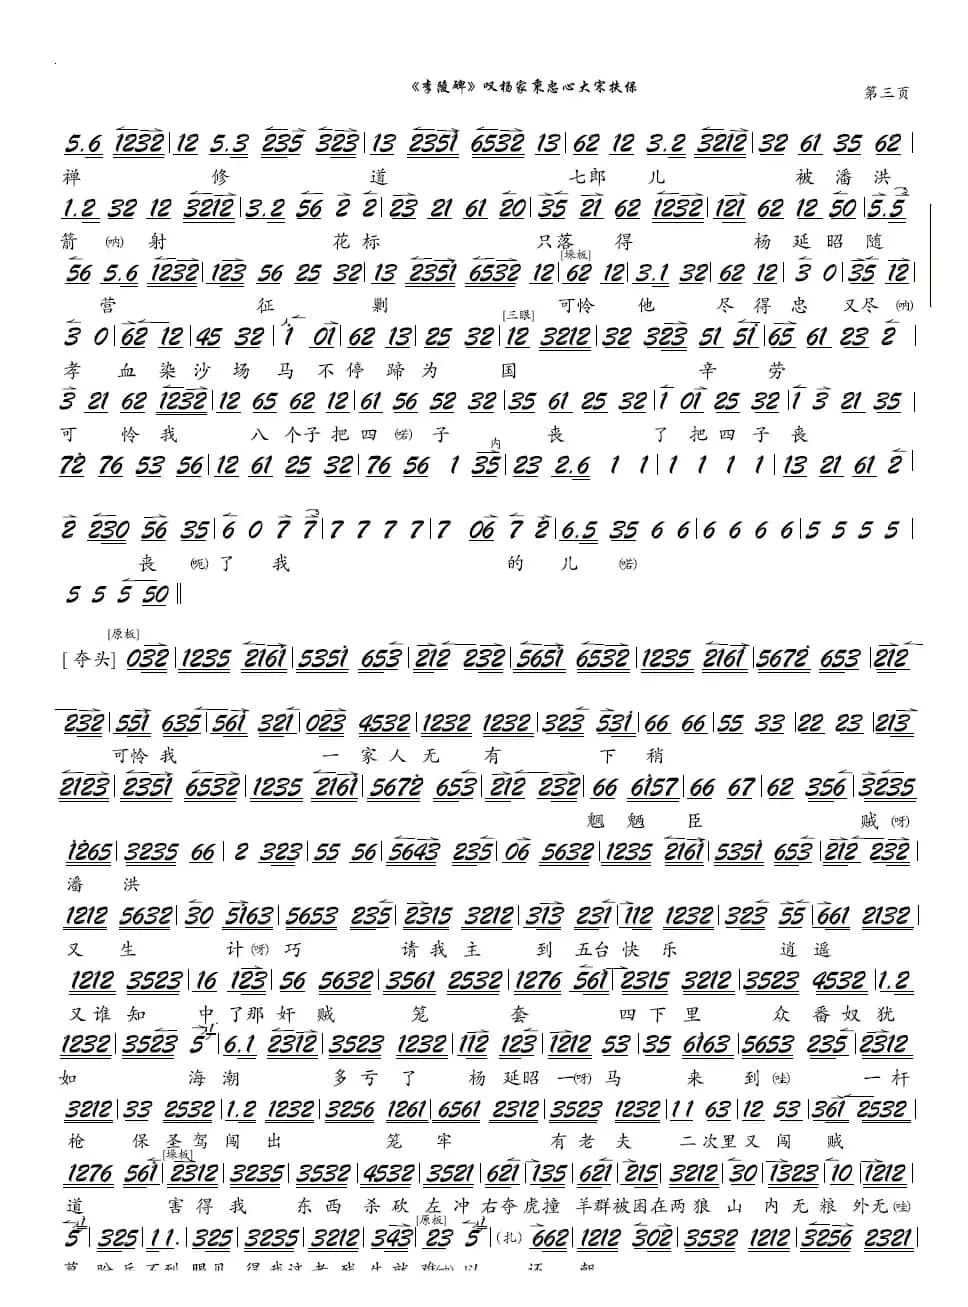 《李陵碑》叹杨家秉忠心大宋扶保
第三页
5.6 1232|12 5.3 235 323|13 2351 6532 13|62 12 3.2 3212|32 61 35 62|
禅 修 道 七郎 儿 被 潘 洪
1.2 32 12 3212|3.2 56 2 2|23 21 61 20|35 21 62 1232|121 62 12 50|5.5
箭 ㈨ 射 花 标 只落 得 杨 延 昭 随
[垛板]
56 5.6 1232|123 56 25 32|13 2351 6532 12|62 12|3.1 32 62 12|3 0|35 12|
营 征 剿 可怜 他 尽 得 忠 又尽 (呐)
[三眼]
3 0|62 12|45 32|1 01|62 13|25 32|12 3212 32 323|51 51|65 61 23 2|
孝 血 染 沙 场 马 不 停 蹄 为 国 辛 劳
3 21 62 1232|12 65 62 12|61 56 52 32|35 61 25 32|1 01 25 32|1 3 21 35|
可 怜 我 八 个子 把 四 (喏) 子 丧 了 把 四 子 丧
内
72 76 53 56|12 61 25 32|76 56 1 35|23 2.6 1 1|1 1 1 1|13 21 61 2|
2 230 56 35|6 0 7 7|7 7 7 7|7 06 7 2|6.5 35 6 6|6 6 6 6|5 5 5 5|
丧 (呃) 了 我 的 儿 (喏)
5 5 5 50‖
[原板]
[夺头] 032|1235 2161|5351 653|212 232|5651 6532|1235 2161|5672 653|212
232|551 635|561 321|023 4532|1232 1232|323 531|66 66|55 33|22 23|213
可怜 我 一 家 人 无 有 下 稍
2123|2351 6532|1235 2161|5672 653|212 232|66 6157|66 67|62 356|3235
魍 魉 臣 贼 (呀)
1265|3235 66|2 323|55 56|5643 235|06 5632|1235 2161|5351 653|212 232|
潘 洪
1212 5632|30 5163|5653 235|2315 3212|313 231|112 1232|323 55|661 2132|
又 生 计 (呀) 巧 请 我 主 到 五台 快 乐 逍 遥
1212 3523|16 123|56 5632|3561 2532|1276 561|2315 3212|3523 4532|1.2
又 谁 知 中 了 那 奸 贼 笼 套 四 下 里 众 番 奴 犹
1232|3523 5|6.1 2312|3523 1232|112 123|1212 53|35 6163|5653 235|2312
如 海 潮 多 亏 了 杨 延昭 一(呀) 马 来 到 (哇) 一 杆
3212|33 2532|1.2 1232|3256 1261|6561 2312|3523 1232|11 63|12 53|361 2532|
枪 保 圣 驾 闯 出 笼 牢 有 老 夫 二 次 里 又 闯 贼
[垛板]
1276 561|2312|3235|3532|4532|3521|621|135|621|215|3212|30|1323|10|1212|
道 害 得 我 东 西 杀 砍 左 冲 右夺 虎撞 羊群 被困 在两 狼 山 内 无 粮 外无 (哇)
[原板]
5|325|11.|325|3235|3212|343|23 5|(扎) 662|1212 302|1212 1212|3256 2321|